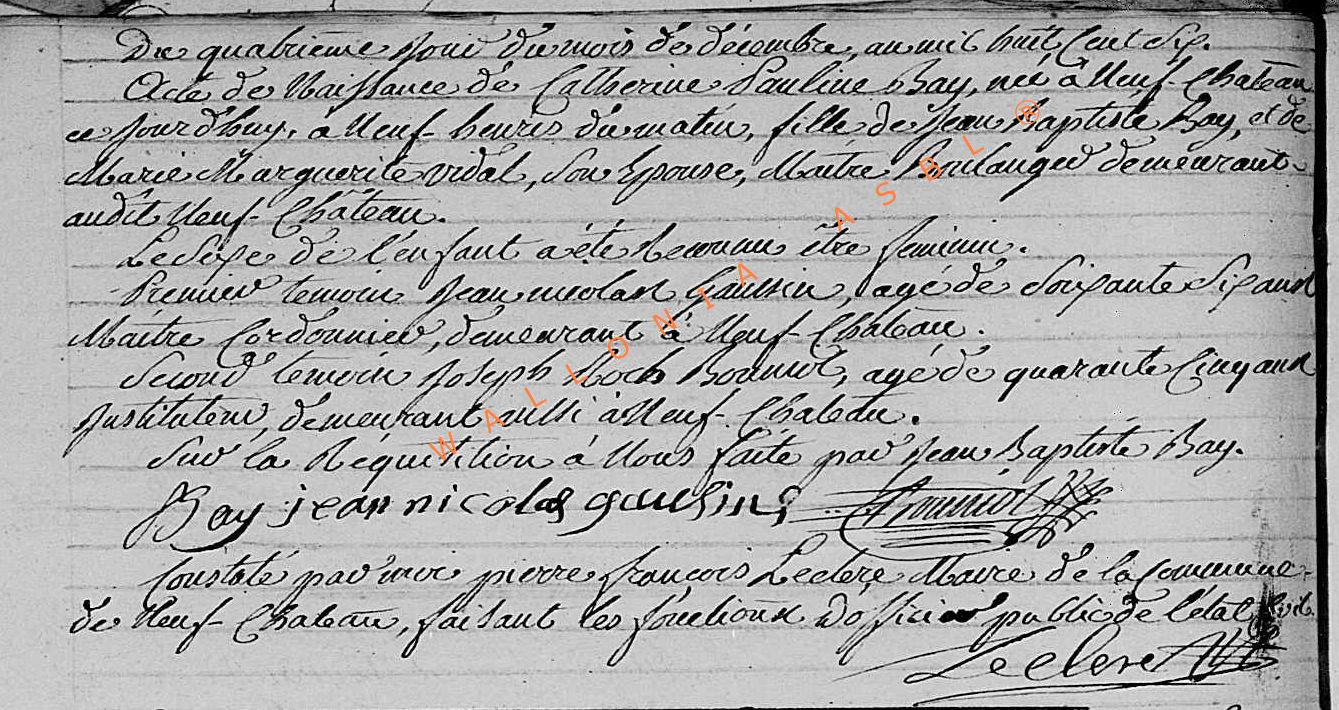 Du quatrieme jour du mois de décembre, an mil huit Cent Six.
Acte de Naissance de Catherine Pauline Bay, née à Neuf-Chateau
ce jourd'huy, à Neuf-heures du matin, fille de Jean Baptiste Bay, et de
Marie Marguerite vidal, Son Epouse, Maitre Boulanger demeurant
audit Neuf-Château.
Le Sexe de l'enfant a été Reconnu être feminin.
Premier temoin Jean nicolas Gaussin, agé de Soixante Six ans
Maitre Cordonnier, demeurant à Neuf-Chateau.
Second temoin Joseph Roch Bouniot, agé de quarante Cinq ans
Instituteur, demeurant aussi à Neuf-Chateau.
Sur la Réquisition à Nous faite par Jean Baptiste Bay.
Bay jean nicolas gausins Bouniot
Constaté par moi pierre françois Leclere Maire de la Commune
de Neuf-Chateau, faisant les fonctions D'officier public de l'état Civil
Leclere
WALLONIA ASBL ®